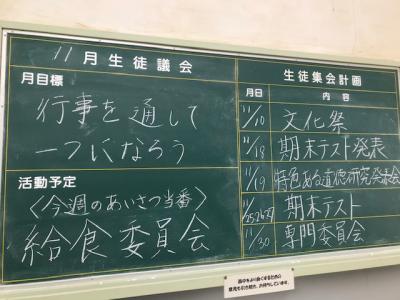 11月生徒議会
月目標
行事を通して
一つになろう
活動予定
〈今週のあいさつ当番〉
給食委員会
生徒集会計画
月日 内容
11/10 文化祭
11/18 期末テスト発表
11/19 特色ある道徳研究発表会
11/25,26,27 期末テスト
11/30 専門委員会